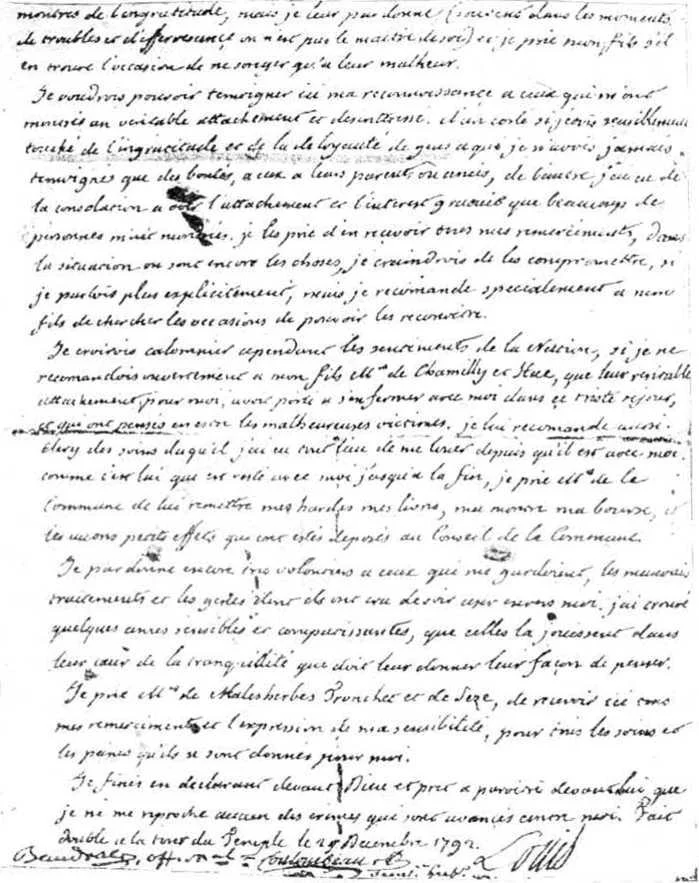 montres de l'ingratitude, mais je leur pardonne (souvent dans les moments
de troubles et d'effervescence on n'est pas le maitre de soi) et je prie mon fils s'il
en trouve l'occasion de ne songer qu'a leur malheur.
Je voudrois pouvoir temoigner ici ma reconnoissance a ceux qui m'ont
montrés un veritable attachement et desinteressé. d'un coté si j'etois sensiblement
touché de l'ingratitude et de la deloyauté de gens a qui je n'avois jamais
temoignes que des bontés, a eux a leurs parents ou amis, de l'autre j'ai eu de
la consolation a voir l'attachement et l'interest gratuit que beaucoup de
personnes m'ont montrés. je les prie d'en recevoir tous mes remerciments, dans
la situation ou sont encore les choses, je craindrois de les compromettre, si
je parlois plus explicitement, mais je recomande specialement a mon
fils de chercher les occasions de pouvoir les reconnoitre.
Je croirois calomnier cependant les sentiments de la Nation, si je ne
recomandois ouvertement a mon fils Mrs de Chamilly et Hue, que leur veritable
attachement pour moi, avoit porté a s'enfermer avec moi dans ce triste sejour,
et qui ont pensés en etre les malheureuses victimes. je lui recomande aussi
Clery des soins duquel j'ai eu tout lieu de me louer depuis qu'il est avec moi
comme c'est lui qui est resté avec moi jusqu'a la fin, je prie Mrs de la
Commune de lui remettre mes hardes mes livres, ma montre ma bourse, et
les autres petits effets qui ont estés deposés au Conseil de la Commune.
Je pardonne encore tres volontiers a ceux qui me gardoient, les mauvais
traitements et les gestes dont ils ont cru devoir user envers moi. j'ai trouvé
quelques ames sensibles et compatissantes, que celles la jouissent dans
leur cœur de la tranquilité que doit leur donner leur façon de penser.
Je prie Mrs de Malesherbes Tronchet et de Seze, de recevoir ici tous
mes remerciments et l'expression de ma sensibilité, pour tous les soins et
les peines qu'ils se sont donnés pour moi.
Je finis en declarant devant Dieu et pret a paroitre devant lui que
je ne me reproche aucun des crimes qui sont avancés contre moi. Fait
double a la tour du Temple le 25 Decembre 1792.
Louis